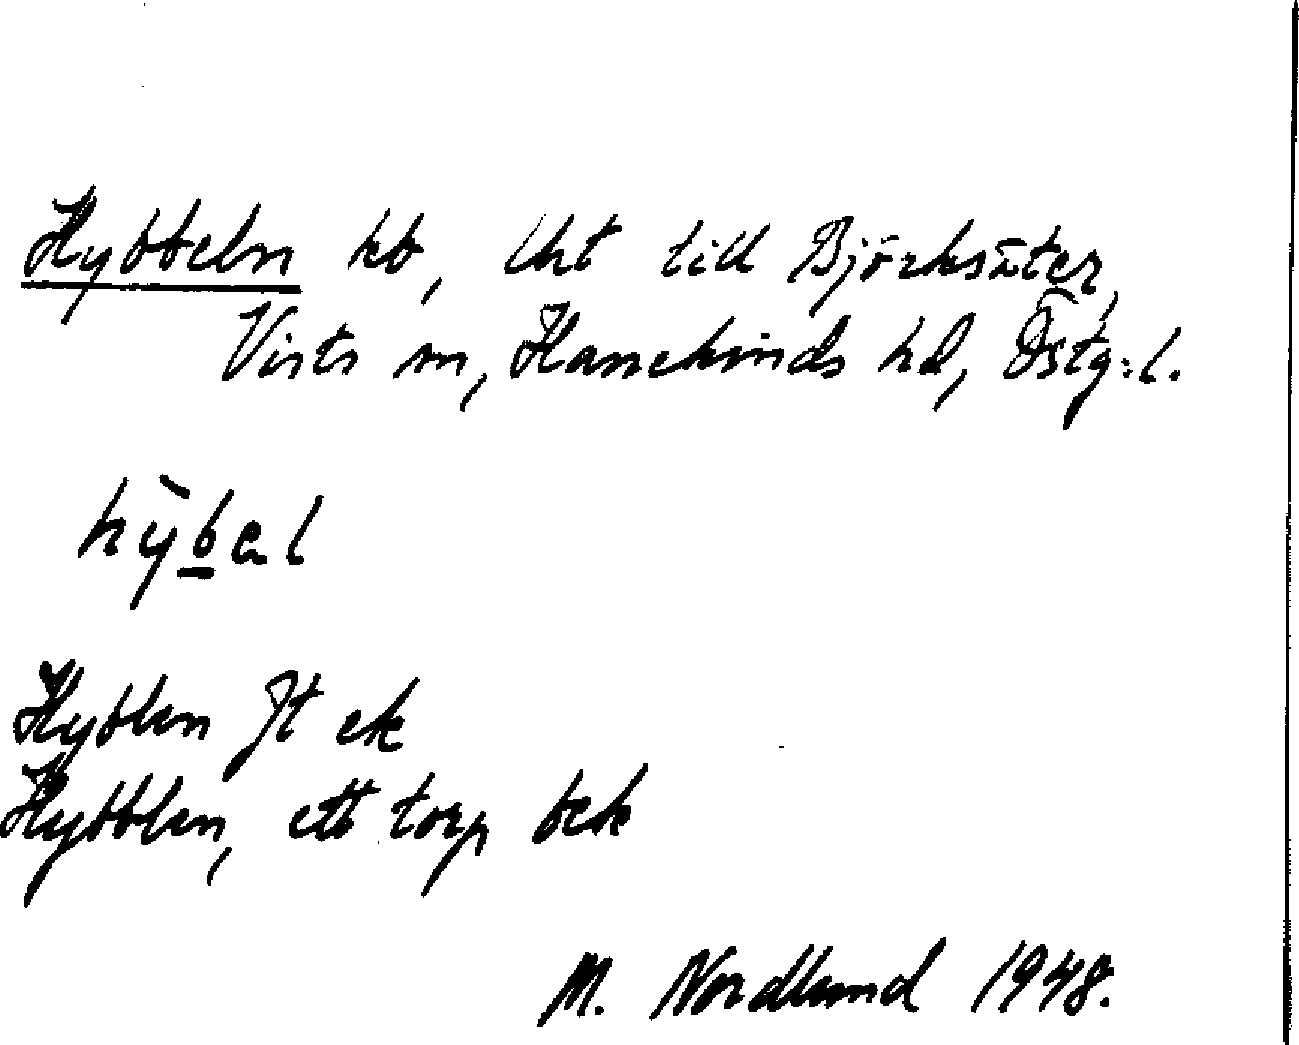 Hybbeln kb, lht till Björksäter,
Vists sn, Hanekinds hd, Östg:l.
hỳbəl
Hyblen Jt ek
Hybblen, ett torp bek
M. Nordlund 1948.